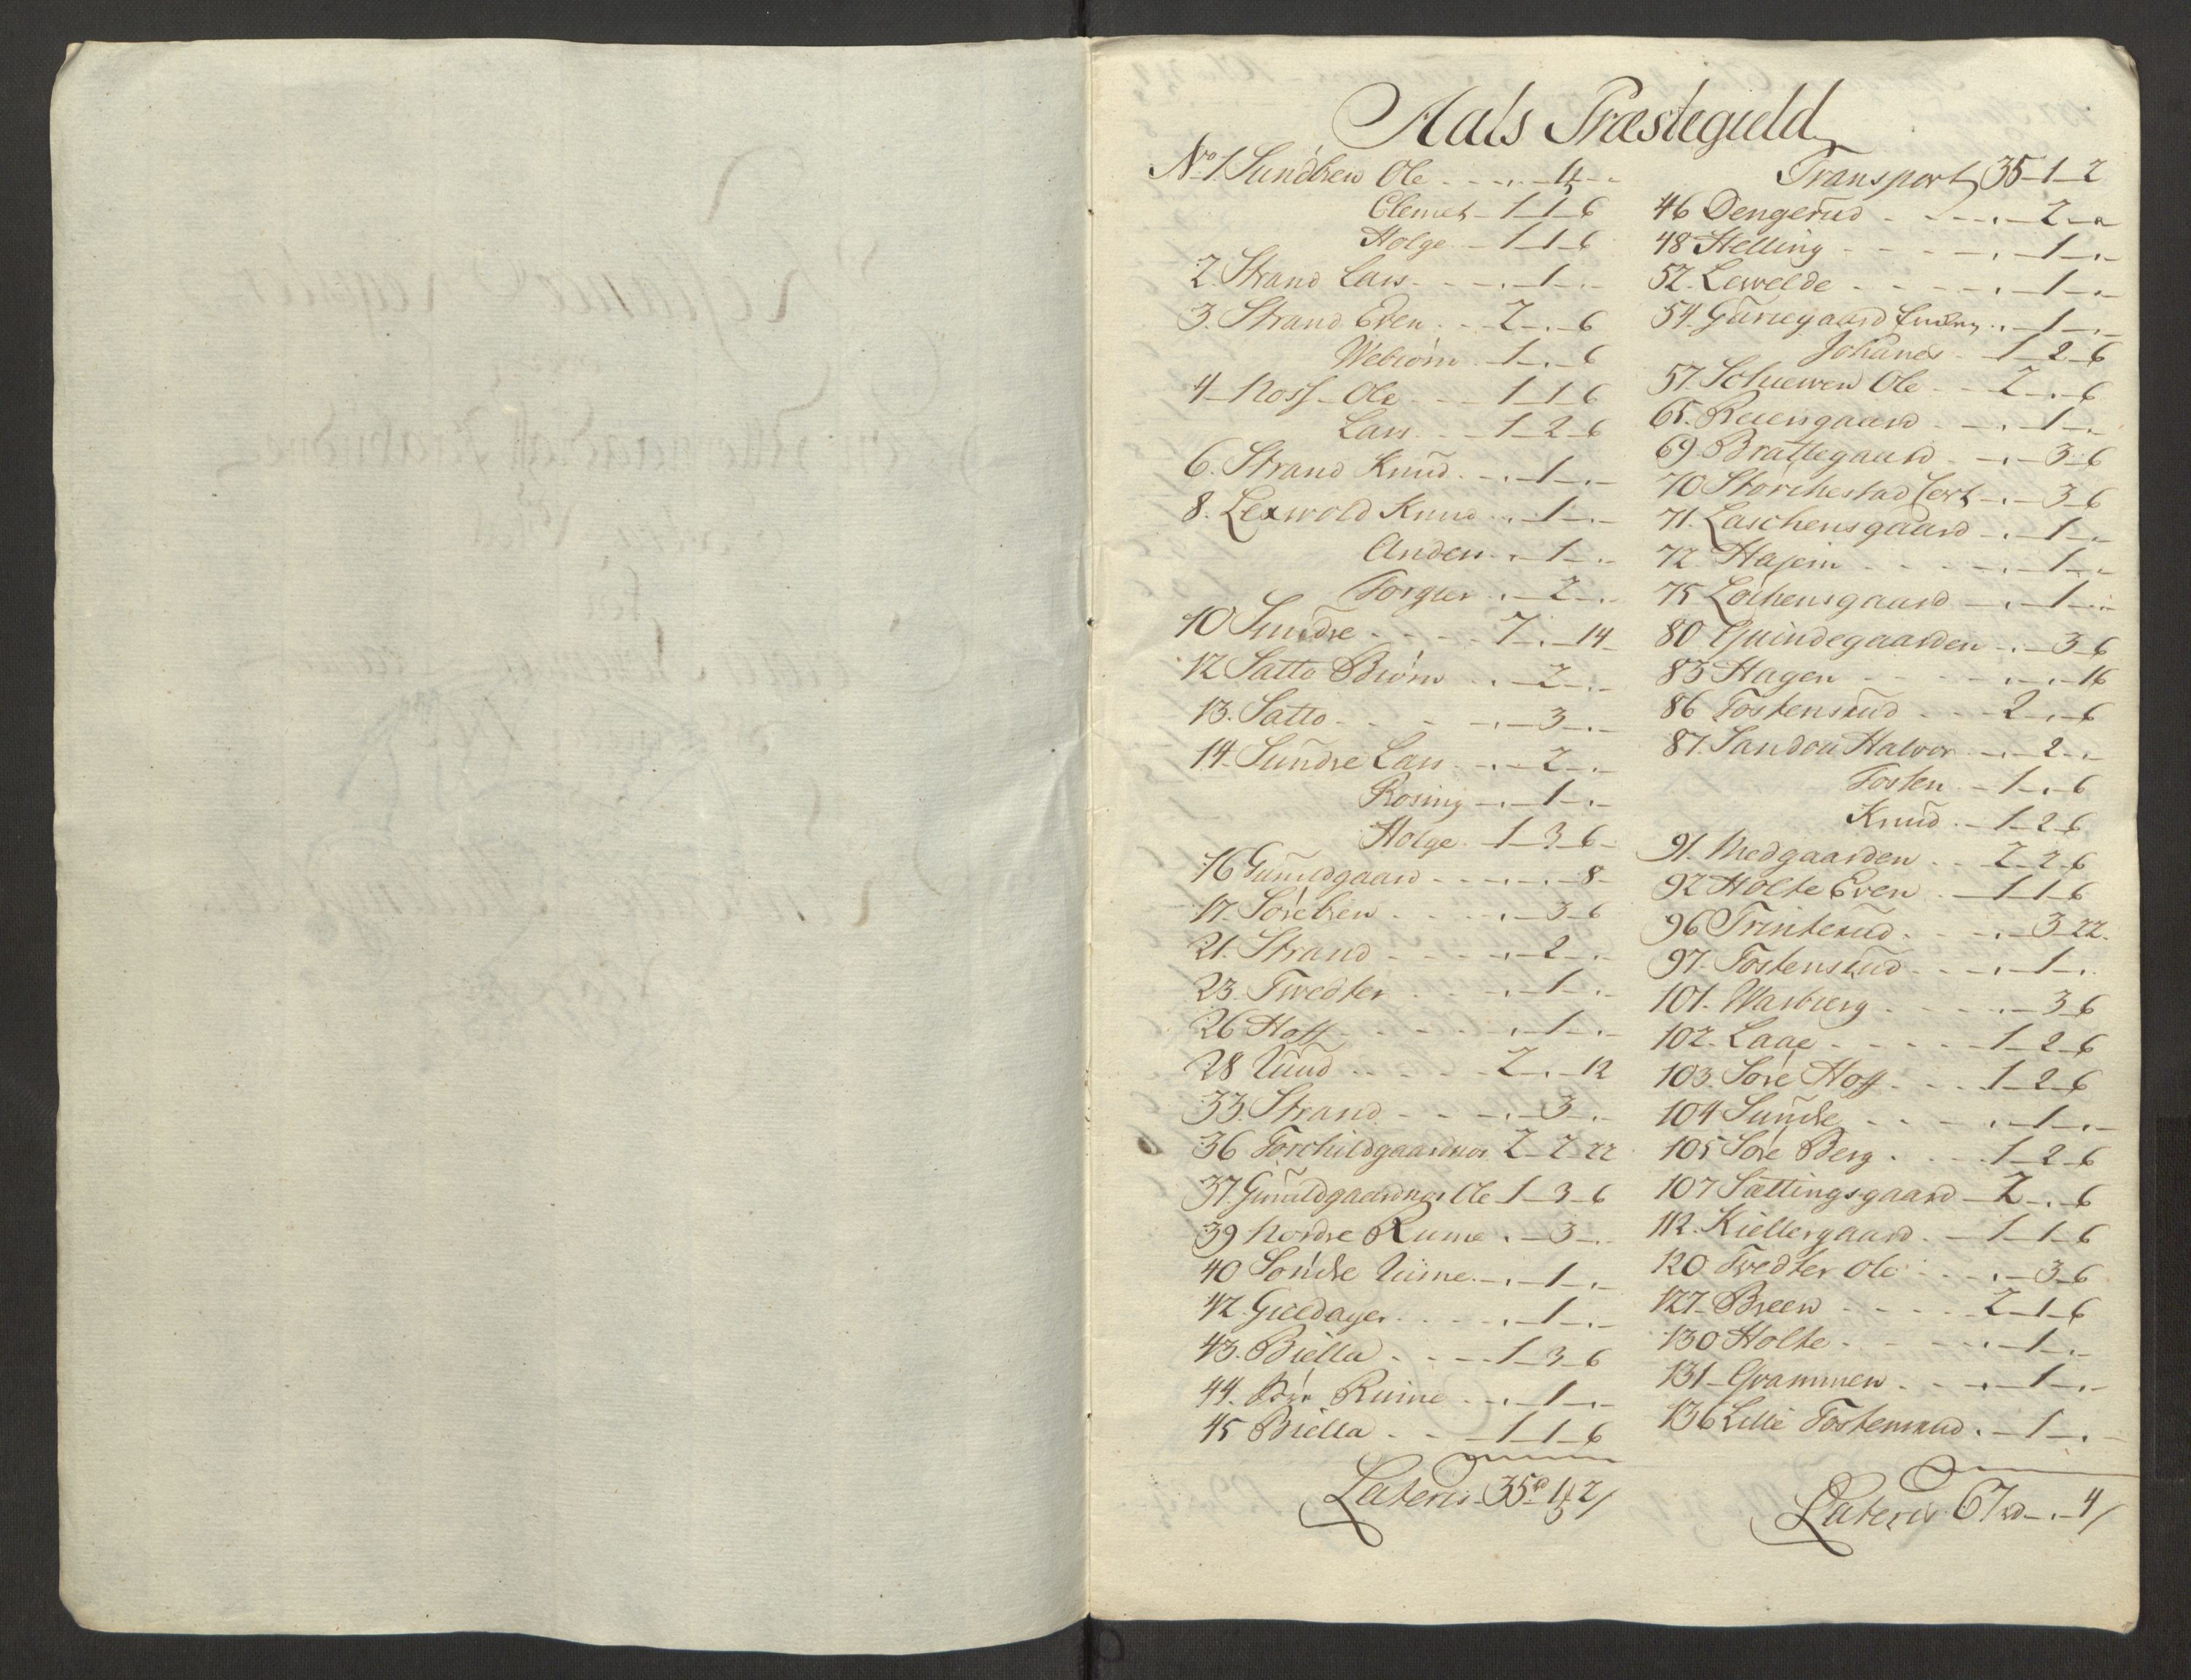 Aals Præstegield
No 1. Sundbren Ole - - . . - 1 - -
Clemet - 1 - 1 - 6
Holge - 1 - 1 - 6
2. Strand Lars - - . - 1 - . -
3. Strand Even - - 2 - . - 6
Webiörn - 1 - . - 6
4 - Noss - Ole - - - 1 - 1 - 6
Lars - - 1 - 2 - 6
6. Strand Knud - . - 1 - . -
8. Lexwold Knud - . - 1 - . -
Anders - . - 1 - . -
Torgier - . - 2 - . -
10 Sundre - - - - 7 - . - 14 -
12 Satto Biörn - . - 2 - . -
13. Satto - - - . - 3 - . -
14. Sundre Lars - . - 2 - . -
Rosing - . - 1 - . -
Holge - 1 - 3 - 6 -
16 Gunildgaard - - - . - . - 8 -
17. Sörebren - - - . - 3 - 6
21. Strand - - - . - 2 - . -
23. Twedter - - - . - 1 - . -
26 Hoff - - - - . - 1 - . -
28 Ruud - - - - 2 - . - 12
33. Strand - - - . - 3 - . -
36 Torchildgaardner 2 - 2 - 22
37. Gunildgaardner Ole 1 - 3 - 6
39 Nordre Ruume . - 3 - . -
40 Söndre Ruime - . - 1 - . -
42. Gieldager - - - . - 1 - . -
43. Biella - - - 1 - 3 - 6
44. Ruine - . - 1 - . -
45 Biella - - - 1 - 1 - 6
Lateris - 35rd 1 - 2 /
Transport 35 - 1 - 2
46 Dengerud - - - . - 2 - . -
48 Helling - - - - . - 1 - . -
52. Lewelde - - - - . - 1 - . -
54. Guriegaard . . - 1 - . -
Johanes - 1 - 2 - 6
57. Schuewen Ole - - 2 - . - 6
65. Reiersgaard - - . - 1 - . -
69. Brattegaard - . - 3 - 6
70 Storchestad - . - 3 - 6
71. Laschensgaard - . - 1 - . -
72. Hasem - - - - . - 1 - . -
75 Lochensgaard - . - 1 - . -
80 Quindegaarden - . - 3 - 6
83 Hagen - - - - . - . - 16
86 Tostensrud - - - 2 - . - 6
87. Sandou Halvor - . - 2 - . -
Tosten - 1 - . - 6
Knud - 1 - 2 - 6
91. Medgaarden - - 2 - 2 - 6
92 Holte Even - - 1 - 1 - 6
96 Trinterud - - - . - 3 - 22.
97. Tostensrud - - - . - 1 - . -
101. Warberg - - - - . - 3 - 6
102. Laae - - - - - 1 - 2 - 6
103. Sore Hoff - - - 1 - 2 - 6
104 Sundre - - - . - 1 - . -
105 Sore Berg - - - 1 - 2 - 6
107 Sættingsgaard - 2 - . - 6
112. Kiellergaard - - 1 - 1 - 6
120 Twedter Ole - - - . - 3 - 6
127. Breen - - - - 2 - 1 - 6
130 Holte - - - - . - 1 - . -
131 - Qvammen - - . - 1 - . -
136 Lille Tostensrud . - 1 - . -
Lateris 67rd - . - 4 /